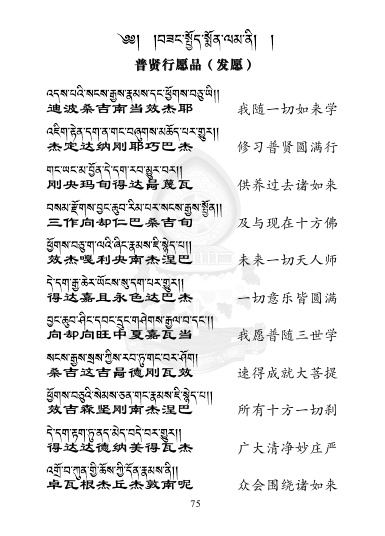 ༄༅།། །བཟང་སྤྱོད་སྨོན་ལམ་ནི། །
普贤行愿品（发愿）
འདས་པའི་སངས་རྒྱས་རྣམས་དང་ཕྱོགས་བཅུ་ཡི།།
迪波桑吉南当效杰耶 我随一切如来学
འཇིག་རྟེན་དག་ན་གང་བཞུགས་མཆོད་པར་གྱུར།།
杰定达纳刚耶巧巴杰 修习普贤圆满行
གང་ཡང་མ་བྱོན་དེ་དག་རབ་མྱུར་བར།།
刚央玛旬得达昌蔑瓦 供养过去诸如来
བསམ་རྫོགས་བྱང་ཆུབ་རིམ་པར་སངས་རྒྱས་སྤྱོན།།
三作向却仁巴桑吉旬 及与现在十方佛
ཕྱོགས་བཅུ་ག་ལའི་ཞིང་རྣམས་ཇི་སྙེད་པ།།
效杰嘎利央南杰涅巴 未来一切天人师
དེ་དག་རྒྱ་ཆེར་ཡོངས་སུ་དག་པར་གྱུར།།
得达嘉且永色达巴杰 一切意乐皆圆满
བྱང་ཆུབ་ཤིང་དབང་དྲུང་གཤེགས་རྒྱལ་བ་དང་།།
向却向旺中夏嘉瓦当 我愿普随三世学
སངས་རྒྱས་སྲས་ཀྱིས་རབ་ཏུ་གང་བར་ཤོག།
桑吉这吉昌德刚瓦效 速得成就大菩提
ཕྱོགས་བཅུའི་སེམས་ཅན་གང་རྣམས་ཇི་སྙེད་པ།།
效吉森坚刚南杰涅巴 所有十方一切刹
དེ་དག་རྟག་ཏུ་ནད་མེད་བདེ་བར་གྱུར།།
得达达德纳美得瓦杰 广大清净妙庄严
འགྲོ་བ་ཀུན་གྱི་ཆོས་ཀྱི་དོན་རྣམས་ནི།།
卓瓦根杰丘杰敦南呢 众会围绕诸如来
75